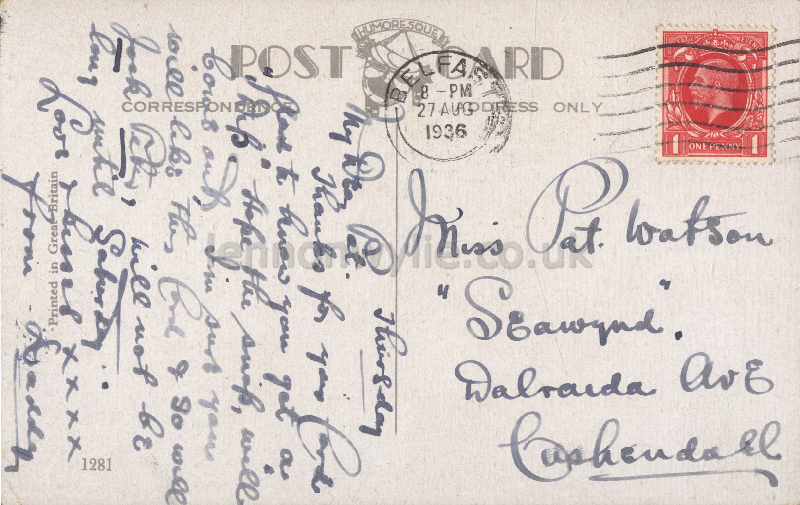 HUMORESQUE
POST CARD
CORRESPONDENCE
ADDRESS ONLY
BELFAST
8 - PM
27 AUG
1936
POSTAGE REVENUE
1 ONE PENNY 1
Thursday
My Dear Pat.
Thanks for your Card
glad to know you got a
"Hope the snap, will
come out, I'm sure you
will like this Card & so will
Jack Peter, will not be
long until Saturday.
Love & kisses xxxx
from - Daddy
Miss Pat. Watson
"Seawynd".
Dalraida AvE
Cushendall
Printed in Great Britain
1281
lennonwylie.co.uk